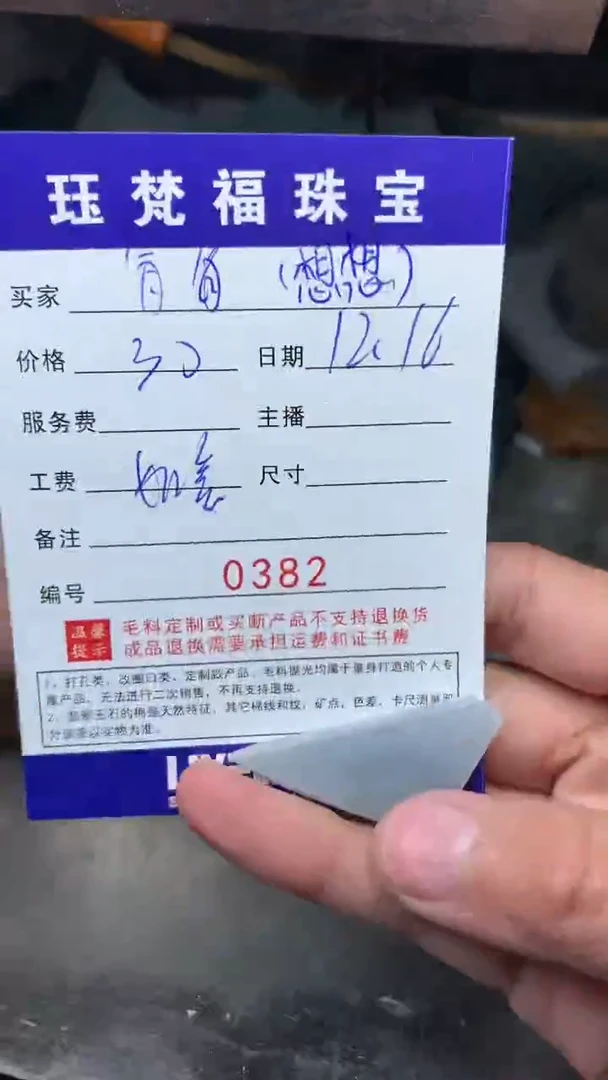 珏梵福珠宝
买家 (想想)
价格 30 日期 12.16
服务费 主播
工费 尺寸
备注
编号 0382
温馨提示 毛料定制或买断产品不支持退换货
成品退换需要承担运费和证书费
1、打孔类、改圈口类、定制款产品、毛料抛光均属于量身打造的个人专
属产品，无法进行二次销售，不再支持退换。
2、翡翠玉石的棉是天然特征，其它棉线和纹，矿点，色差，卡尺测量